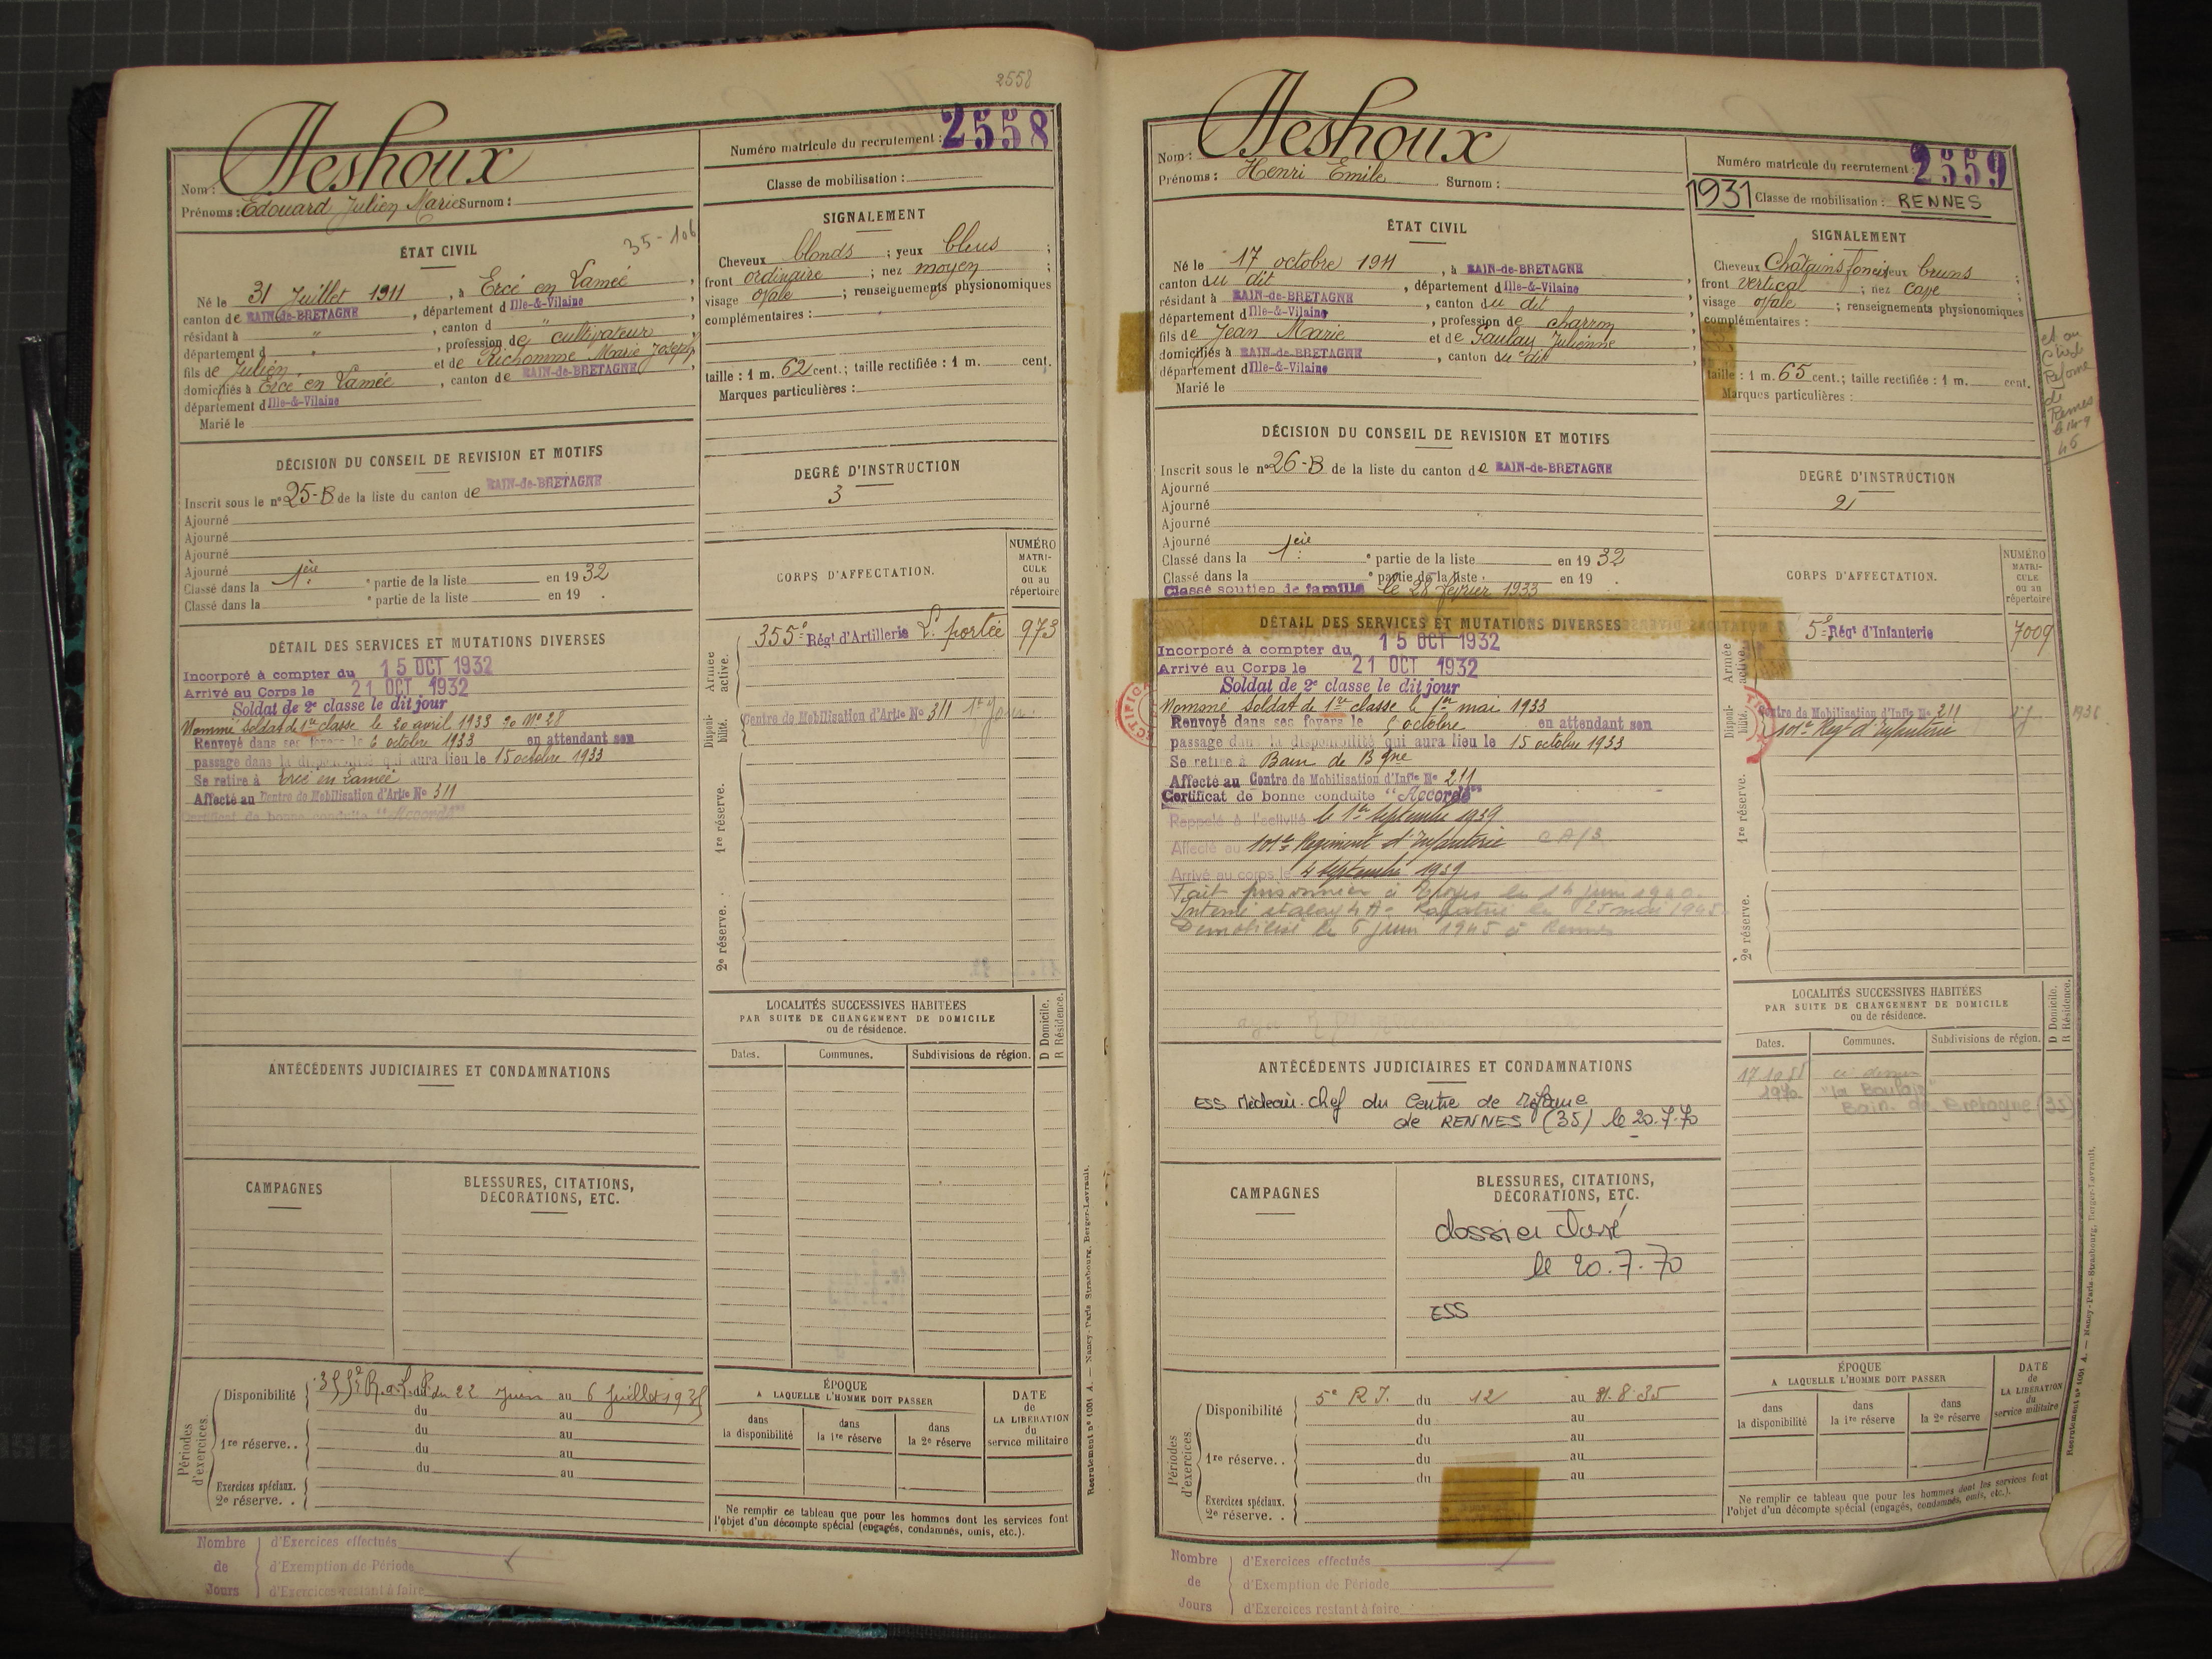 2558
Heshoux
Nom :
Prénoms : Edouard Julien Marie Surnom :
Numéro matricule du recrutement : 2558
Classe de mobilisation :
ÉTAT CIVIL
35-106
Né le 31 Juillet 1911, à Ercé en Lamée,
canton de BAIN-de-BRETAGNE, département d Ille-&-Vilaine,
résidant à " , canton d " ,
département d " , profession de cultivateur,
fils de Julien et de Richomme Marie Joseph,
domiciliés à Ercé en Lamée, canton de BAIN-de-BRETAGNE,
département d Ille-&-Vilaine
Marié le
SIGNALEMENT
Cheveux blonds ; yeux bleus ;
front ordinaire ; nez moyen ;
visage ovale ; renseignements physionomiques
complémentaires :
taille : 1 m. 62 cent.; taille rectifiée : 1 m. cent.
Marques particulières :
DÉCISION DU CONSEIL DE REVISION ET MOTIFS
Inscrit sous le n° 25-B de la liste du canton de BAIN-de-BRETAGNE
Ajourné
Ajourné
Ajourné
Ajourné
Classé dans la 1ère e partie de la liste en 1932
Classé dans la e partie de la liste en 19 .
DEGRÉ D'INSTRUCTION
3
CORPS D'AFFECTATION.
NUMÉRO MATRI-CULE ou au répertoire
Armée active.
355e Régt d'Artillerie L. portée 973
Disponibilité.
Centre de Mobilisation d'Artie No 311
1re réserve.
2e réserve.
DÉTAIL DES SERVICES ET MUTATIONS DIVERSES
Incorporé à compter du 15 OCT 1932
Arrivé au Corps le 21 OCT. 1932
Soldat de 2e classe le dit jour
Nommé soldat de 1re classe le 20 avril 1933 No 28
Renvoyé dans ses foyers le 6 octobre 1933 en attendant son
passage dans la disponibilité qui aura lieu le 15 octobre 1933
Se retire à Ercé en Lamée
Affecté au Centre de Mobilisation d'Artie No 311
Certificat de bonne conduite "Accordé"
LOCALITÉS SUCCESSIVES HABITÉES
PAR SUITE DE CHANGEMENT DE DOMICILE
ou de résidence.
D Domicile.
R Résidence.
Dates. Communes. Subdivisions de région.
ANTÉCÉDENTS JUDICIAIRES ET CONDAMNATIONS
CAMPAGNES
BLESSURES, CITATIONS,
DÉCORATIONS, ETC.
Périodes d'exercices.
Disponibilité du 22 Juin au 6 Juillet 1935
du au
1re réserve.. du au
du au
du au
Exercices spéciaux.
2e réserve. .
ÉPOQUE
A LAQUELLE L'HOMME DOIT PASSER
dans la disponibilité
dans la 1re réserve
dans la 2e réserve
DATE de LA LIBÉRATION du service militaire
Ne remplir ce tableau que pour les hommes dont les services font
l'objet d'un décompte spécial (engagés, condamnés, omis, etc.).
Nombre de Jours
d'Exercices effectués
d'Exemption de Période
d'Exercices restant à faire
Recrutement n° 1001 A. — Nancy-Paris-Strasbourg, Berger-Levrault.
Heshoux
Nom :
Prénoms : Henri Emile Surnom :
Numéro matricule du recrutement : 2559
1931 Classe de mobilisation : RENNES
ÉTAT CIVIL
Né le 17 octobre 1911, à BAIN-de-BRETAGNE
canton du dit, département d Ille-&-Vilaine,
résidant à BAIN-de-BRETAGNE, canton du dit,
département d Ille-&-Vilaine, profession de charron,
fils de Jean Marie et de Gaulay Julienne
domiciliés à BAIN-de-BRETAGNE, canton du dit
département d Ille-&-Vilaine
Marié le
SIGNALEMENT
Cheveux Châtains foncés yeux bruns ;
front vertical ; nez cave ;
visage ovale ; renseignements physionomiques
complémentaires :
taille : 1 m. 65 cent.; taille rectifiée : 1 m. cent.
Marques particulières :
DÉCISION DU CONSEIL DE REVISION ET MOTIFS
Inscrit sous le n° 26-B de la liste du canton de BAIN-de-BRETAGNE
Ajourné
Ajourné
Ajourné
Ajourné
Classé dans la 1ère e partie de la liste en 1932
Classé dans la e partie de la liste en 19 .
Classé soutien de famille le 28 février 1933
DEGRÉ D'INSTRUCTION
2
CORPS D'AFFECTATION.
NUMÉRO MATRI-CULE ou au répertoire
Armée active.
5e Régt d'Infanterie 7009
Disponibilité.
Centre de Mobilisation d'Infie No 211 1936
101e Regt d'Infanterie
1re réserve.
2e réserve.
DÉTAIL DES SERVICES ET MUTATIONS DIVERSES
Incorporé à compter du 15 OCT 1932
Arrivé au Corps le 21 OCT 1932
Soldat de 2e classe le dit jour
Nommé Soldat de 1re classe le 1er mai 1933
Renvoyé dans ses foyers le 5 octobre en attendant son
passage dans la disponibilité qui aura lieu le 15 octobre 1933
Se retire à Bain de Bgne
Affecté au Centre de Mobilisation d'Infie No 211
Certificat de bonne conduite "Accordé"
Rappelé à l'activité le 1er Septembre 1939
Affecté au 101e Régiment d'Infanterie CA/3
Arrivé au corps le 4 Septembre 1939
Fait prisonnier à Troyes le 14 juin 1940
Interné stalag 4 A - Rapatrié le 25 mai 1945
Démobilisé le 6 juin 1945 à Rennes
LOCALITÉS SUCCESSIVES HABITÉES
PAR SUITE DE CHANGEMENT DE DOMICILE
ou de résidence.
D Domicile.
R Résidence.
Dates. Communes. Subdivisions de région.
1970 "la Boulais"
Bain de Bretagne (35)
ANTÉCÉDENTS JUDICIAIRES ET CONDAMNATIONS
ESS Médecin-chef du Centre de réforme
de RENNES (35) le 20.7.70
CAMPAGNES
BLESSURES, CITATIONS,
DÉCORATIONS, ETC.
dossier
le 20.7.70
ESS
Périodes d'exercices.
Disponibilité 5e R.I. du 12 au 8-35
du au
1re réserve. . du au
du au
du au
Exercices spéciaux.
2e réserve. .
ÉPOQUE
A LAQUELLE L'HOMME DOIT PASSER
dans la disponibilité
dans la 1re réserve
dans la 2e réserve
DATE de LA LIBÉRATION du service militaire
Ne remplir ce tableau que pour les hommes dont les services font
l'objet d'un décompte spécial (engagés, condamnés, omis, etc.).
Nombre de Jours
d'Exercices effectués
d'Exemption de Période
d'Exercices restant à faire
Recrutement n° 1001 A. — Nancy-Paris-Strasbourg, Berger-Levrault.